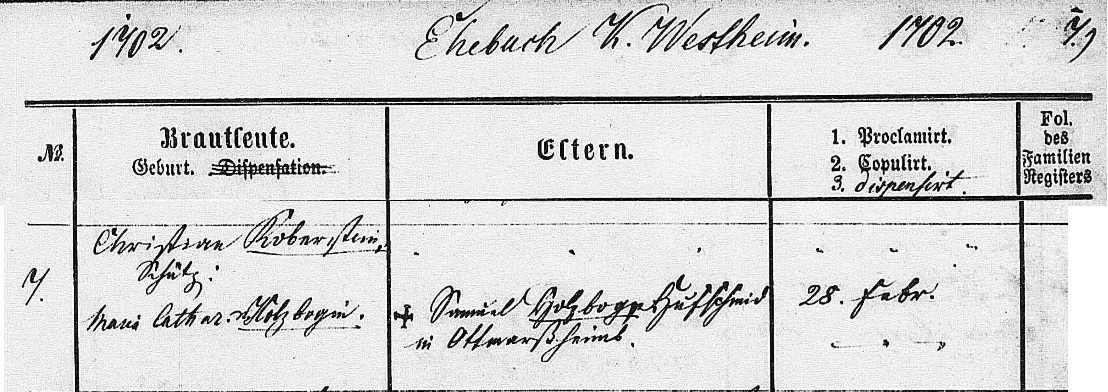 1702. Ehebuch K. Westheim. 1702. 7.)
No. Brautleute. Eltern. 1. Proclamirt. Fol.
Geburt. Dispensation. 2. Copulirt. des
3. dispensirt. Familien
Registers
Christian Koberstein,
Schütz:
7. Maria Cathar. Holzbogin. † Samuel Holzbogg Hufschmid 28. Febr.
in Ottmarßheim